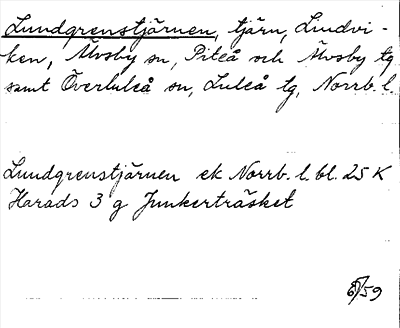 Lundgrenstjärnen, tjärn, Lindvi-
ken, Älvsby sn, Piteå och Älvsby tg
samt Överluleå sn, Luleå tg, Norrb. l.
Lundgrenstjärnen ek Norrb. l. bl. 25 K
Harads 3 g Junkerträsket
/59